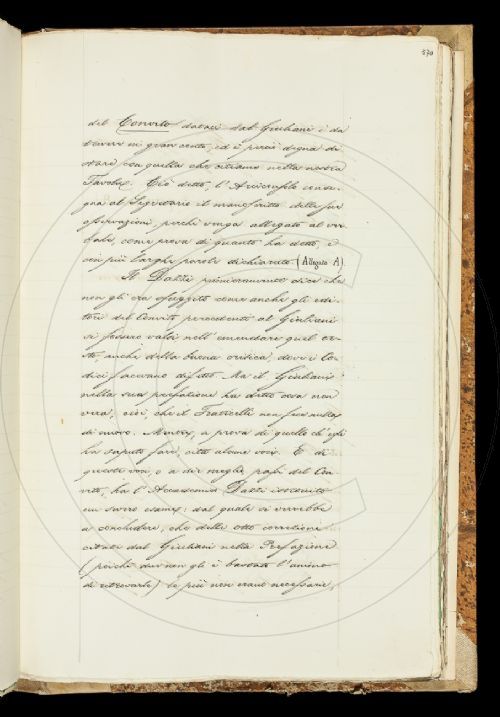 530
del Convito datoci dal Giuliani è da
tenere in gran conto, ed è perciò degna di
stare con quelle che citiamo nella nostra
Tavola. Ciò detto, l'Arciconsolo conse-
gna al Segretario il manoscritto delle sue
osservazioni perchè venga allegato al ver-
bale, come prova di quanto ha detto, e
con più larghe parole dichiarato (Allegato A).
Il Dalzi primieramente dice che
non gli era sfuggito come anche gli edi-
tori del Convito precedenti al Giuliani
si fossero valsi nell' emendare quel te-
sto anche della buona critica, dove i Co-
dici facevano difetto. Ma il Giuliani
nella sua prefazione ha detto cosa non
vera, cioè, che il Fraticelli non fece nulla
di nuovo. Mentre, a prova di quello ch' egli
ha saputo fare, cita alcune voci. E di
queste voci, o a dir meglio passi del Con-
vito, ha l'Accademico Dalzi istituito
un nuovo esame: dal quale si verrebbe
a concludere, che delle otto correzioni
citate dal Giuliani nella Prefazione
(poichè due non gli è bastato l'animo
di ritrovarle) le più non erano necessarie,